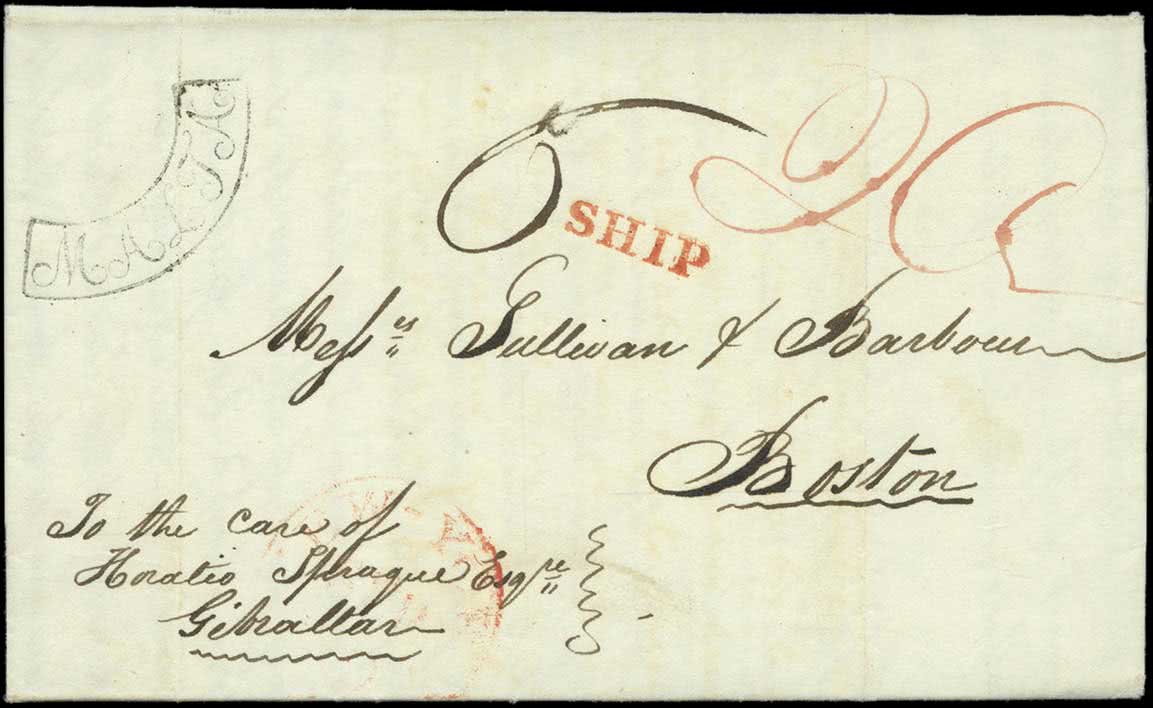 MALTA
6
SHIP
Messrs Sullivan & Barbour
Boston
To the care of
Horatio Sprague Esqre
Gibraltar